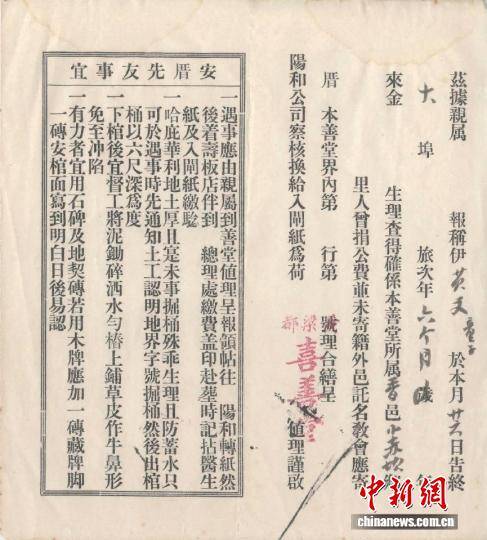 茲據親属 報稱伊 於本月廿六日告終
大埠 旅次年六个月
來金 生理查得確係本善堂所属香邑
里人曾捐公費並未寄籍外邑託名敎會應寄
厝 本善堂界內第 行第 號理合繕呈
陽和公司察核換給入閘紙爲荷
都
喜善堂
値理謹啟
安厝先友事宜
一遇事應由親属到善堂値理呈報領帖往 陽和轉紙然
後着壽板店伴到 總理處繳費盖印赴葬時記拈醫生
紙及入閘紙繳騐
一哈庇華利地土厚且寔未事掘桶殊乖生理且防蓄水只
可於遇事時先通知土工認明地界字號掘桶然後出棺
桶以六尺深爲度
一下棺後宜督工將泥鋤碎洒水勻樁上鋪草皮作牛鼻形
免至冲陷
一有力者宜用石碑及地契磚若用木牌應加一磚藏牌脚
一磚安棺面寫到明白日後易認
中新網
chinanews.com.cn